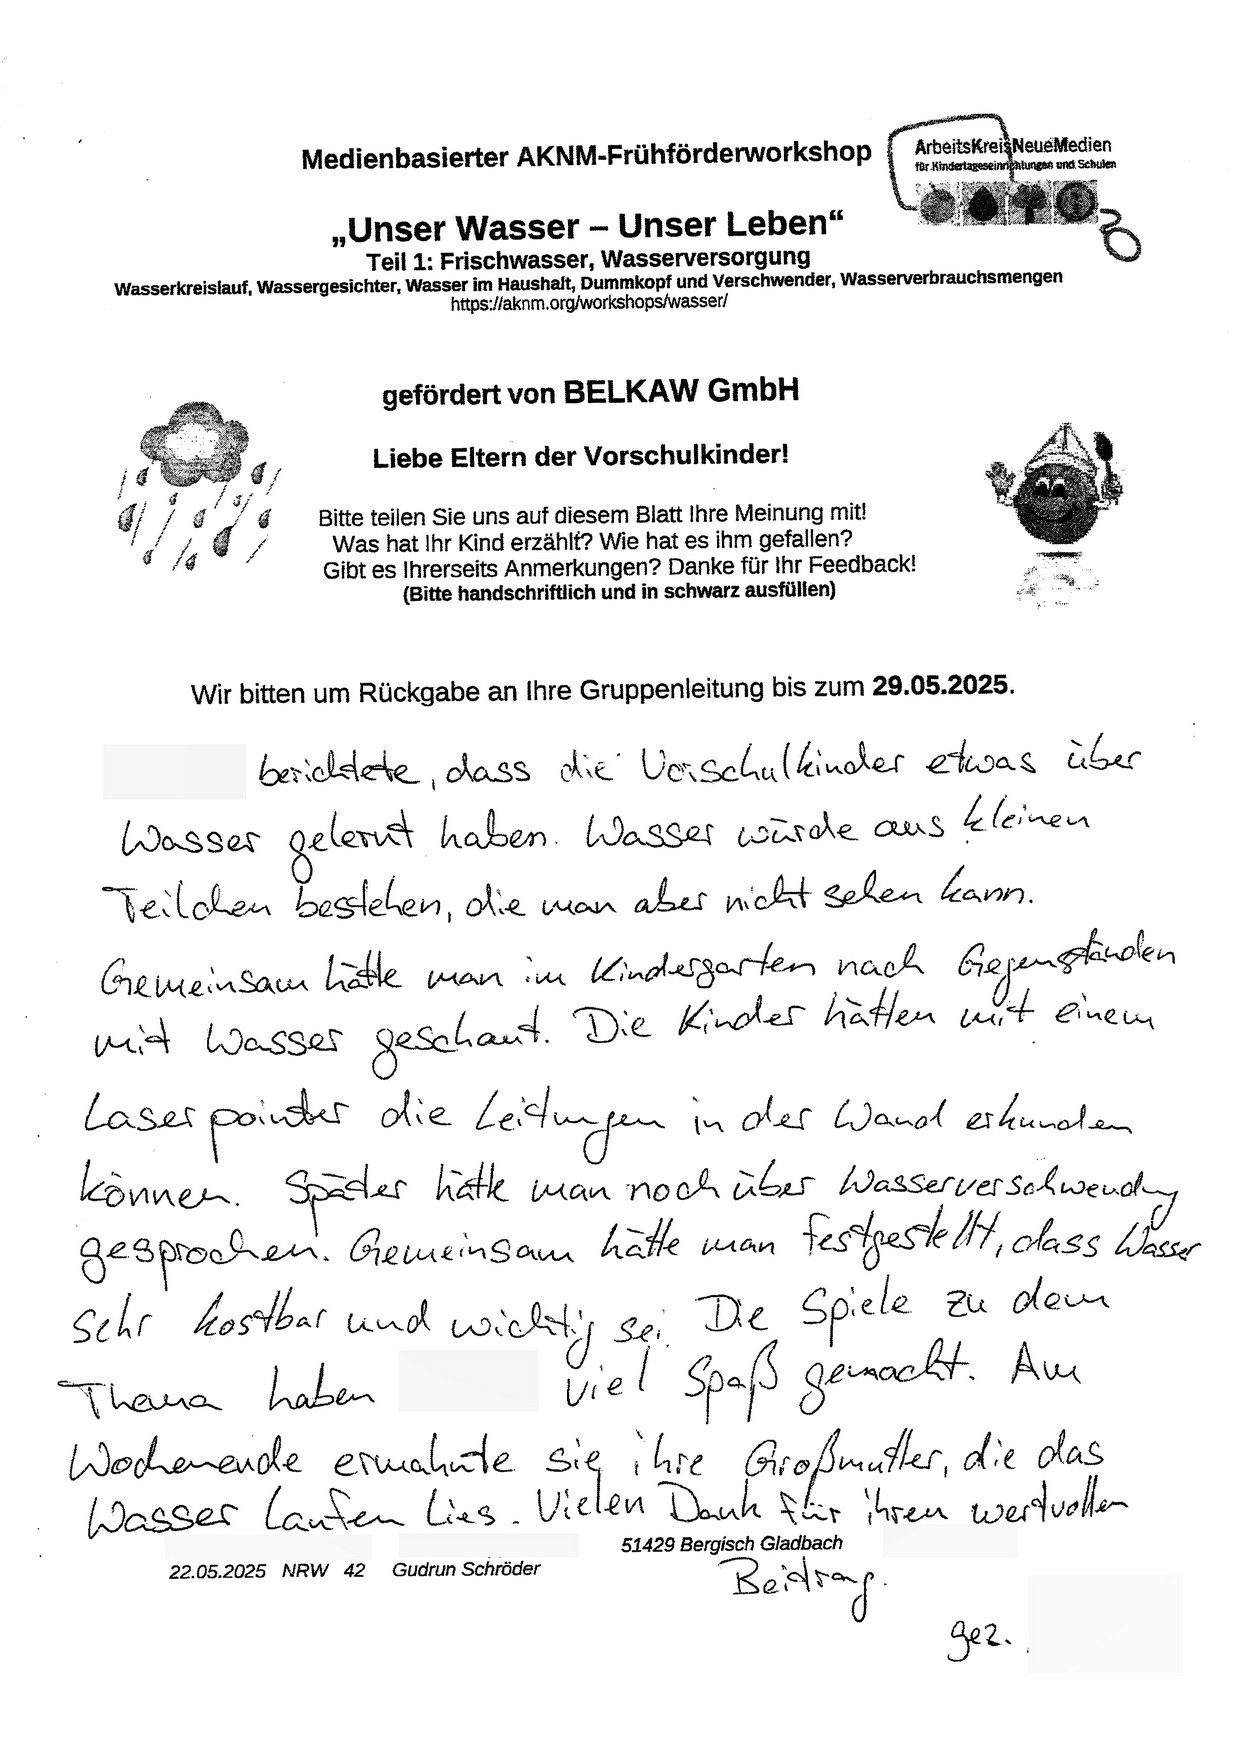 Medienbasierter AKNM-Frühförderworkshop
ArbeitsKreisNeueMedien
für Kindertageseinrichtungen und Schulen
„Unser Wasser – Unser Leben“
Teil 1: Frischwasser, Wasserversorgung
Wasserkreislauf, Wassergesichter, Wasser im Haushalt, Dummkopf und Verschwender, Wasserverbrauchsmengen
https://aknm.org/workshops/wasser/
gefördert von BELKAW GmbH
Liebe Eltern der Vorschulkinder!
Bitte teilen Sie uns auf diesem Blatt Ihre Meinung mit!
Was hat Ihr Kind erzählt? Wie hat es ihm gefallen?
Gibt es Ihrerseits Anmerkungen? Danke für Ihr Feedback!
(Bitte handschriftlich und in schwarz ausfüllen)
Wir bitten um Rückgabe an Ihre Gruppenleitung bis zum 29.05.2025.
berichtete, dass die Vorschulkinder etwas über
Wasser gelernt haben. Wasser würde aus kleinen
Teilchen bestehen, die man aber nicht sehen kann.
Gemeinsam hätte man im Kindergarten nach Gegenständen
mit Wasser geschaut. Die Kinder hätten mit einem
Laserpointer die Leitungen in der Wand erkunden
können. Später hätte man noch über Wasserverschwendung
gesprochen. Gemeinsam hätte man festgestellt, dass Wasser
sehr kostbar und wichtig sei. Die Spiele zu dem
Thema haben viel Spaß gemacht. Am
Wochenende ermahnte sie ihre Großmutter, die das
Wasser laufen lies. Vielen Dank für ihren wertvollen
51429 Bergisch Gladbach
22.05.2025 NRW 42 Gudrun Schröder
Beitrag.
gez.